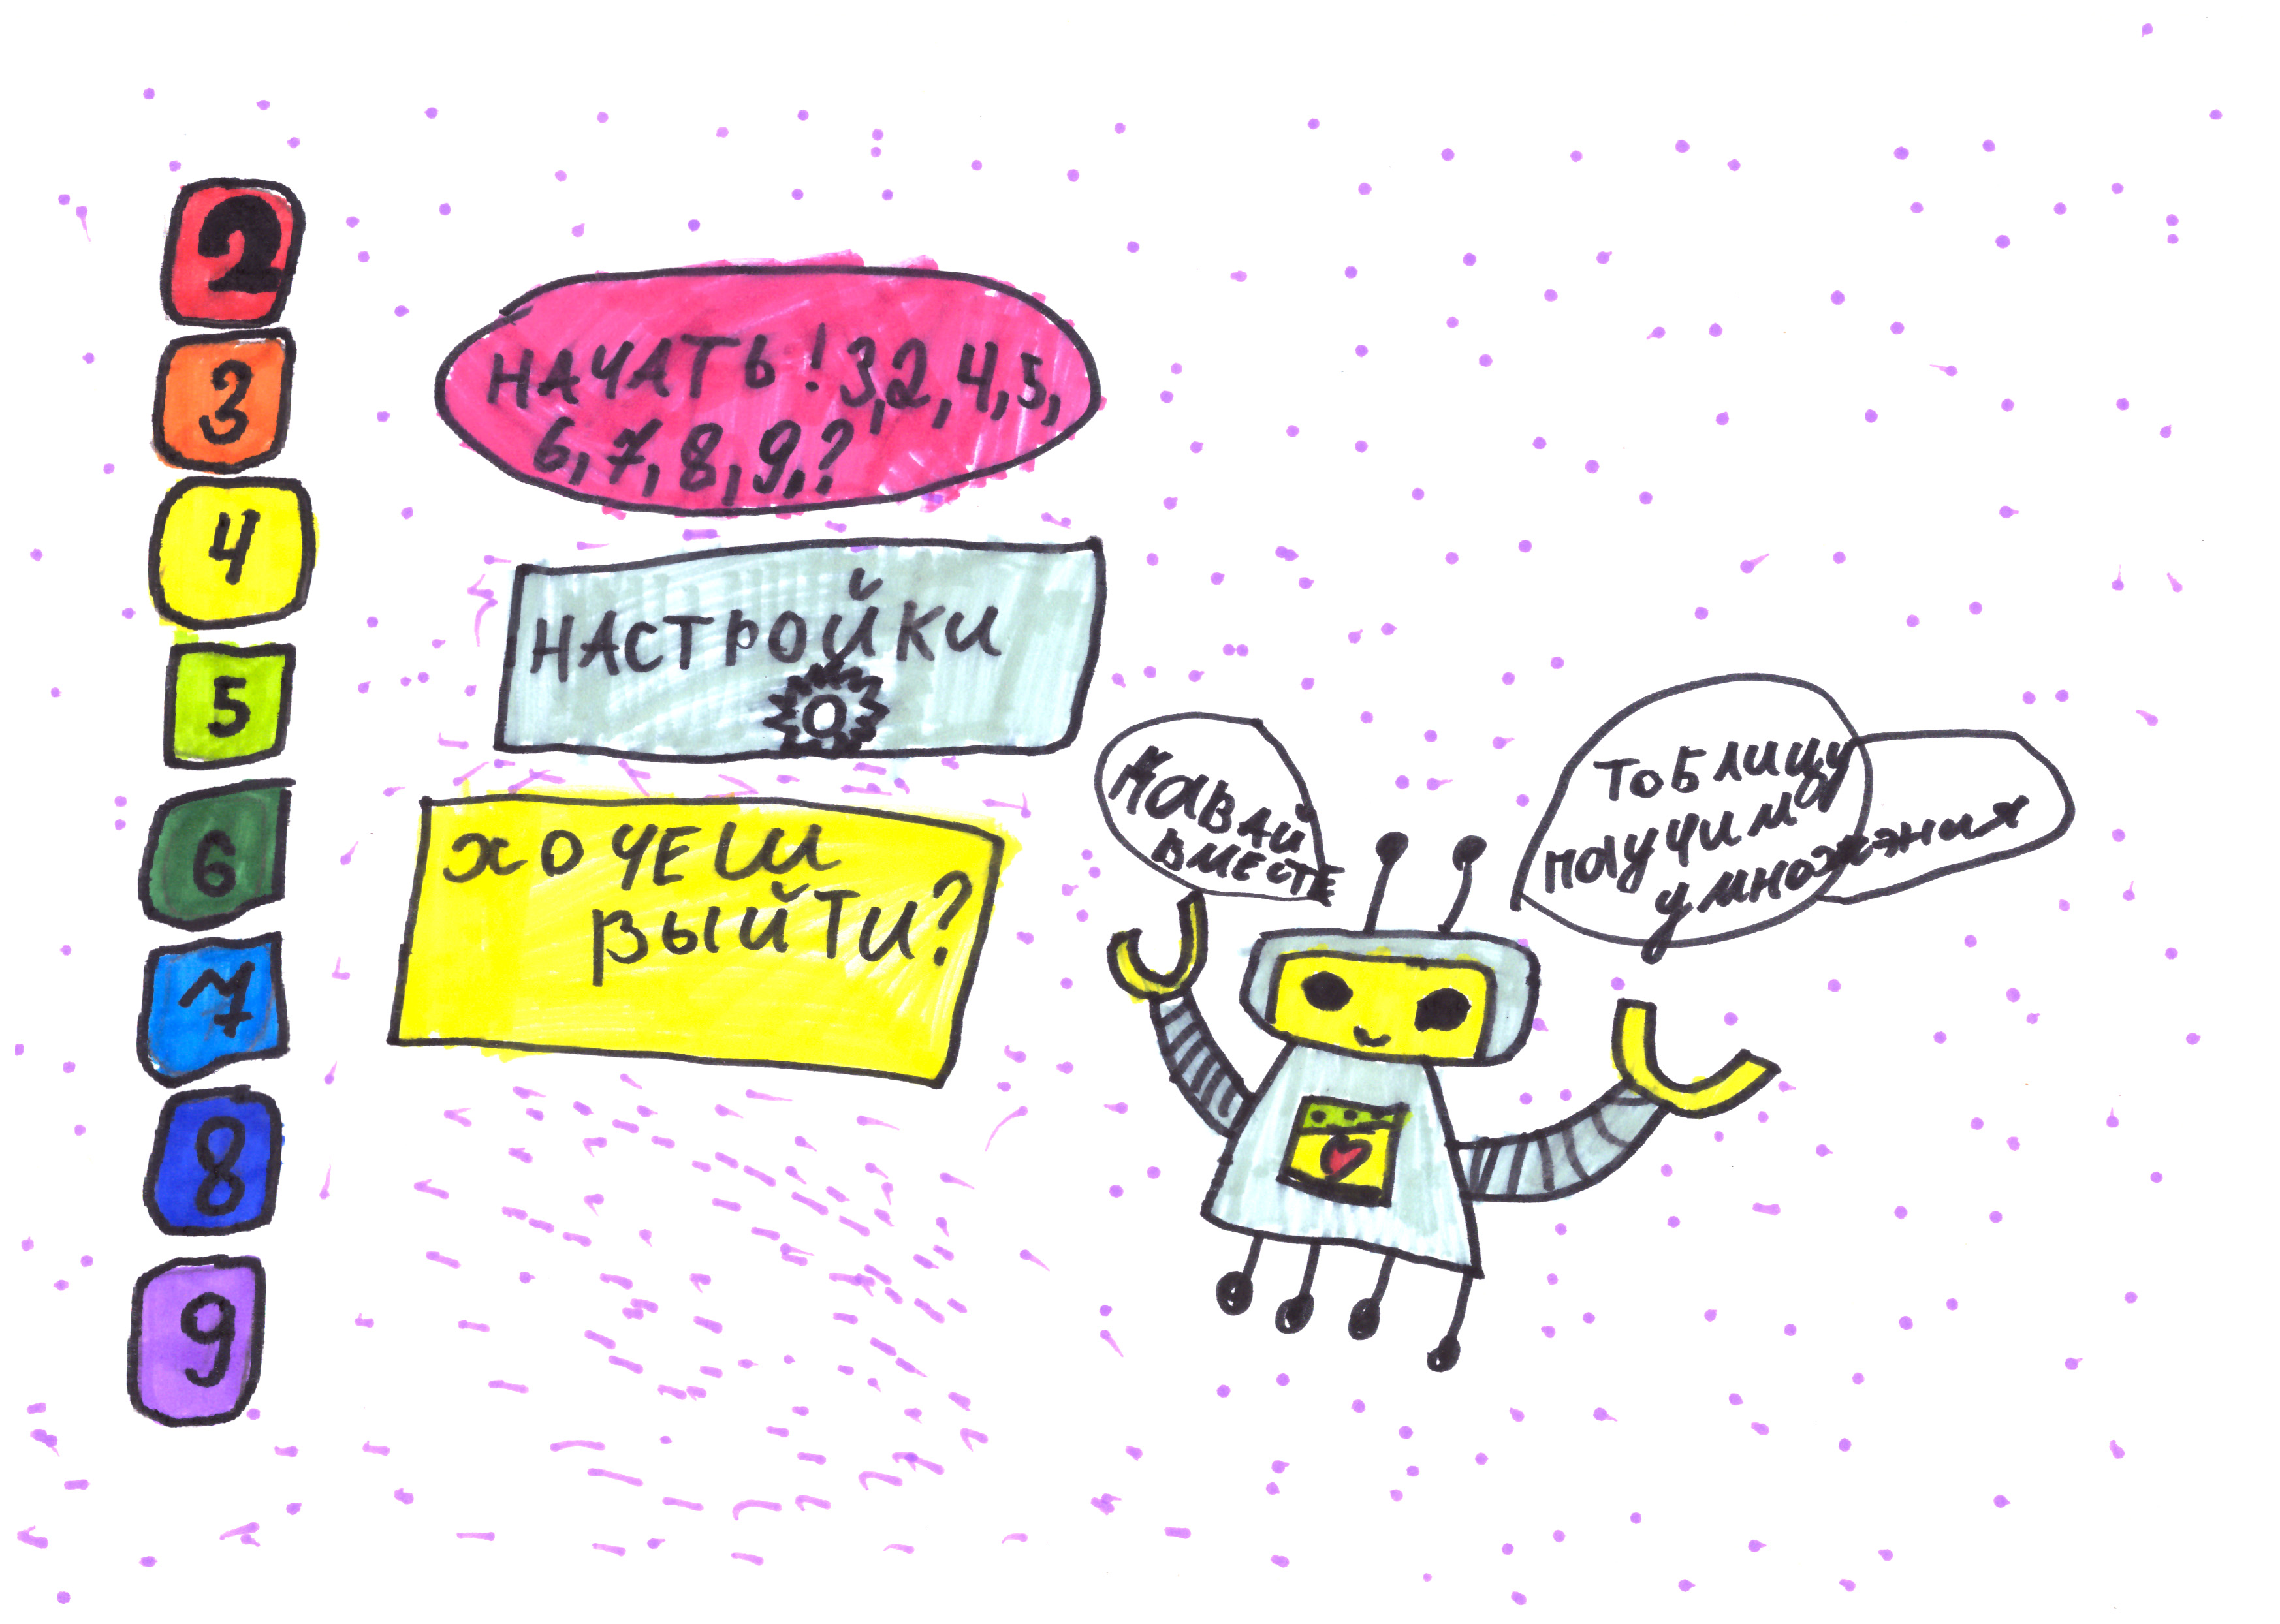 2
3
4
5
6
7
8
9
НАЧАТЬ! 3,2,4,5,
6,7,8,9,?
НАСТРОЙКИ
ХОЧЕШ
ВЫЙТИ?
ДАВАЙ
ВМЕСТЕ
ТОБЛИЦУ
ПОУЧИМ
УМНОЖЭНИЯ